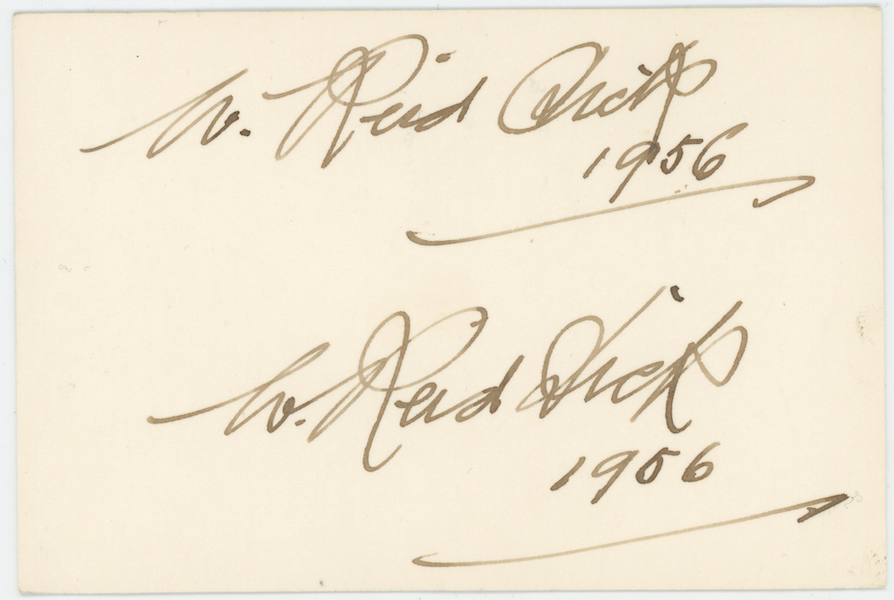 W. Reid Dick
1956
W. Reid Dick
1956